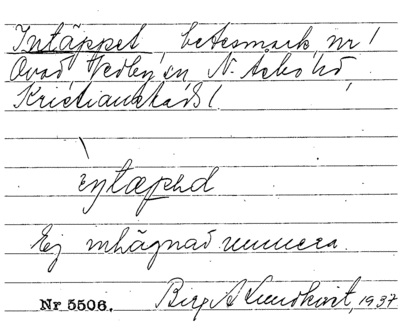 Intäppet, betesmark, nr 1
Ovad, Vedby sn, N. Åsbo hd,
Kristianstads l
ɪŋtæpəd
Ej inhägnad numera.
Nr 5506. Birg A Lundkvist, 1937